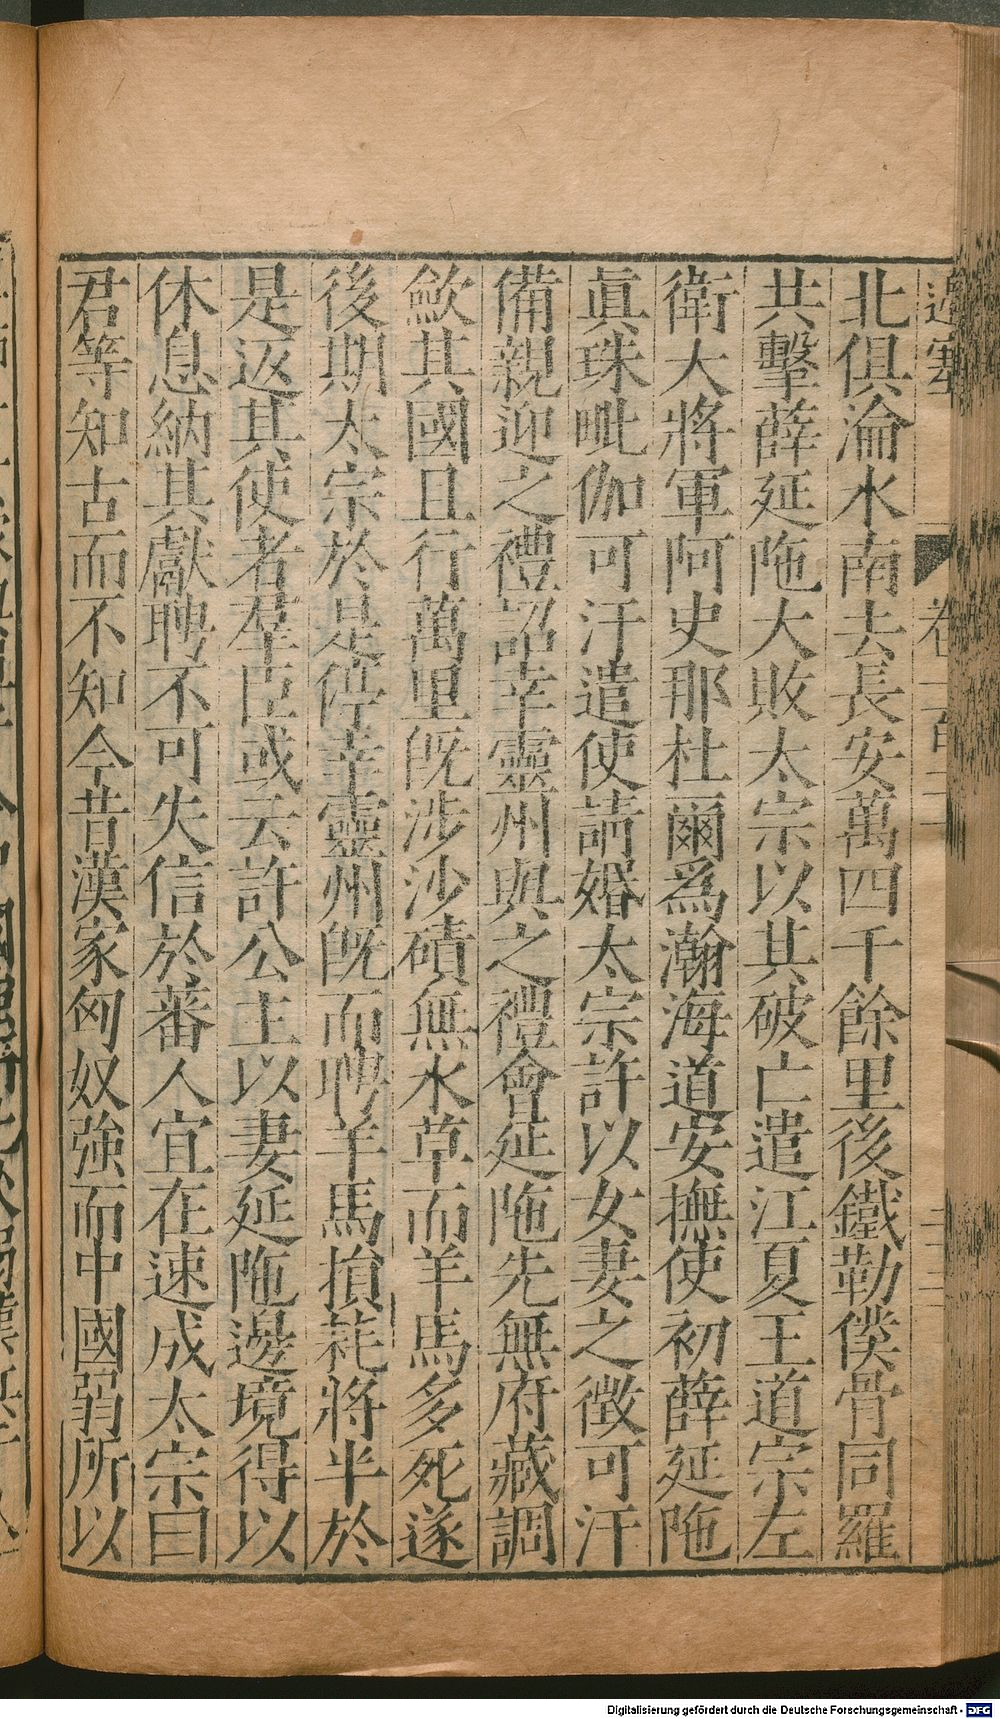 北俱淪水南去長安萬四千餘里後鐵勒僕骨同羅
共擊薛延陁大敗太宗以其破亡遣江夏王道宗左
衛大將軍阿史那杜爾爲瀚海道安撫使初薛延陁
眞珠毗伽可汗遣使請婚太宗許以女妻之徴可汗
備親迎之禮詔幸靈州與之禮會延陁先無府藏調
歛其國且行萬里旣涉沙磧無水草而羊馬多死遂
後期太宗於是停幸靈州旣而聘羊馬損耗將半於
是返其使者羣臣或云許公主以妻延陁邊境得以
休息納其獻聘不可失信於蕃人宜在速成太宗曰
君等知古而不知今昔漢家匈奴強而中國弱所以
Digitalisierung gefördert durch die Deutsche Forschungsgemeinschaft - DFG